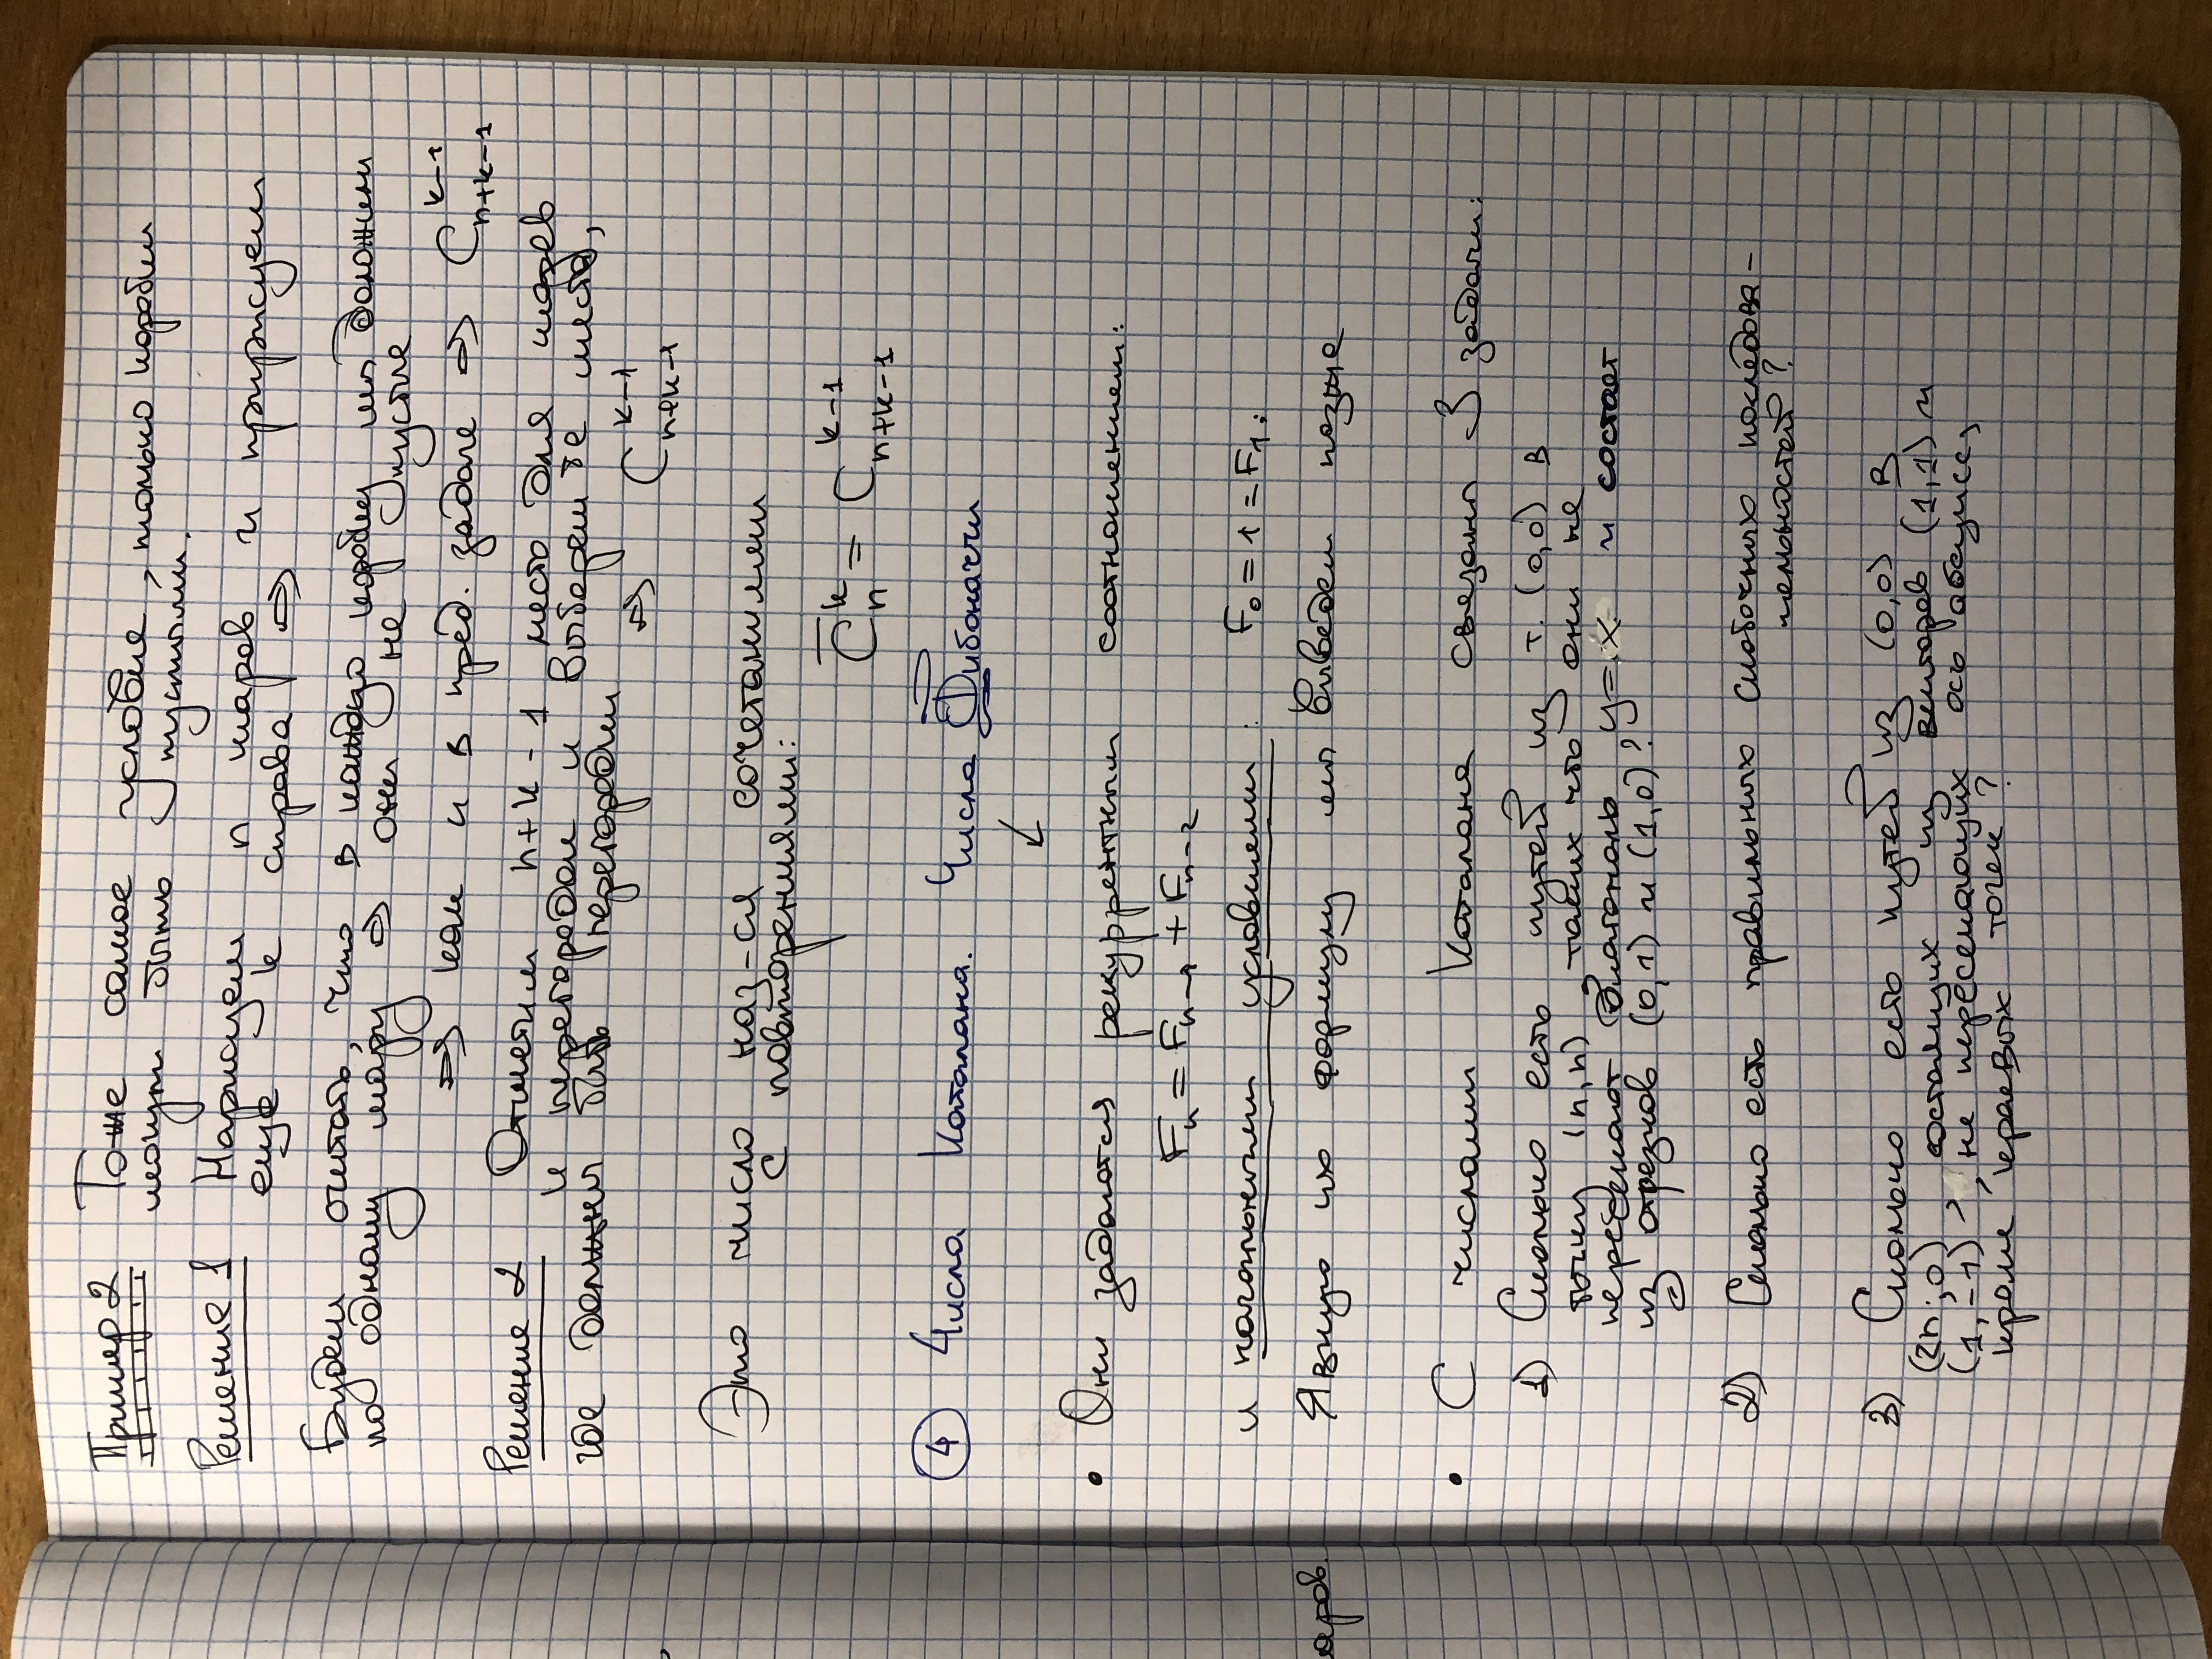 Пример 2 Тоже самое условие, только коробки
могут быть пустыми.
Решение 1 Нарисуем n шаров и пририсуем
еще k справа ⇒
Будем считать, что в каждую коробку мы доложили
по одному шару ⇒ они не пустые
⇒ как и в пред. задаче ⇒ C_{n+k-1}^{k-1}
Решение 2 Отметим n+k-1 место для шаров
и перегородок и выберем те места,
где должны быть перегородки
⇒ C_{n+k-1}^{k-1}
Это число наз-ся сочетаниями
с повторениями:
C̅_n^k = C_{n+k-1}^{k-1}
4 Числа Каталана. Числа Фибоначчи
↙
• Они задаются рекуррентным соотношением:
F_n = F_{n-1} + F_{n-2}
и начальными условиями: F_0 = 1 = F_1.
аров.
Явную их формулу мы выведем позже
• С числами Каталана связаны 3 задачи:
1) Сколько есть путей из т. (0,0) в
точку (n,n), таких что они не
пересекают диагональ y=x и состоят
из отрезков (0,1) и (1,0)?
2) Сколько есть правильных скобочных последова-
тельностей?
3) Сколько есть путей из (0,0) в
(2n;0), состоящих из векторов (1,1) и
(1,-1), не пересекающих ось абсцисс,
кроме краевых точек?